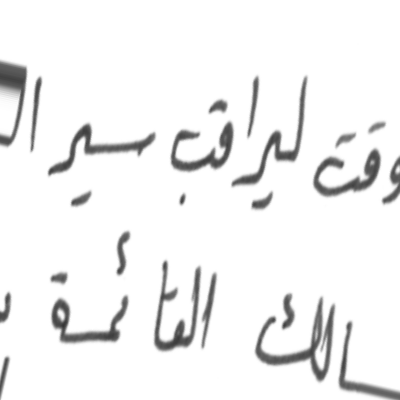 وقت ليراقب سير ال
الك القائمة